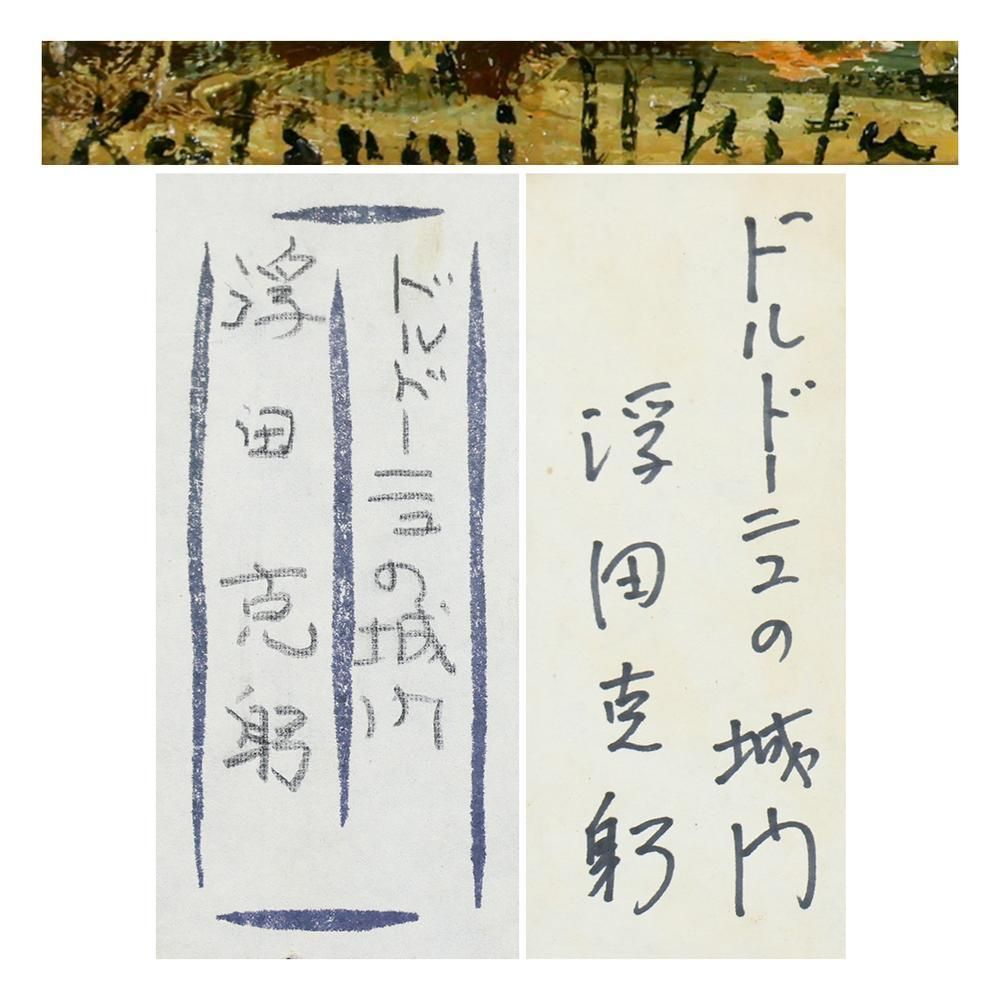 Katsumi Ukita
ドルドーニュの城門
浮田克躬
ドルドーニュの城門
浮田克躬